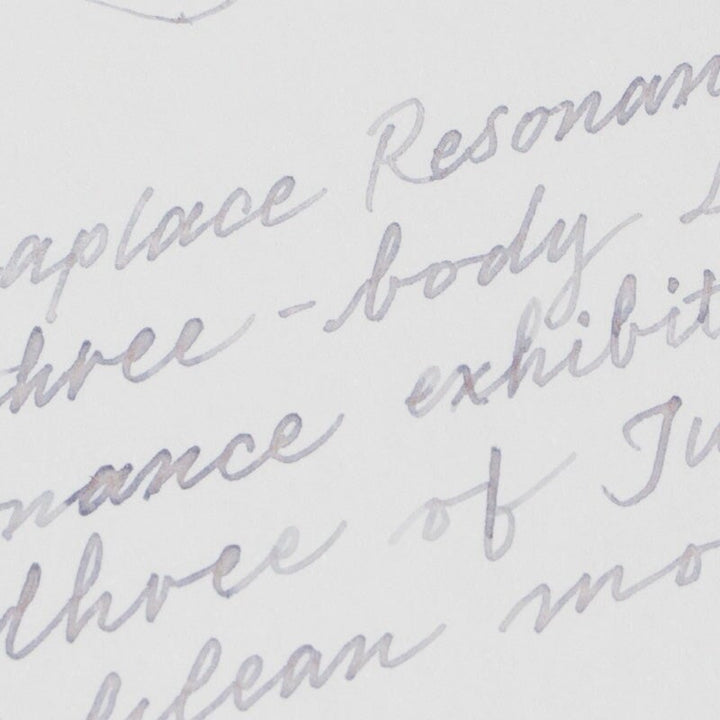 aplace Resonan
hree-body L
nance exhibit
three of Ju
lilean mo